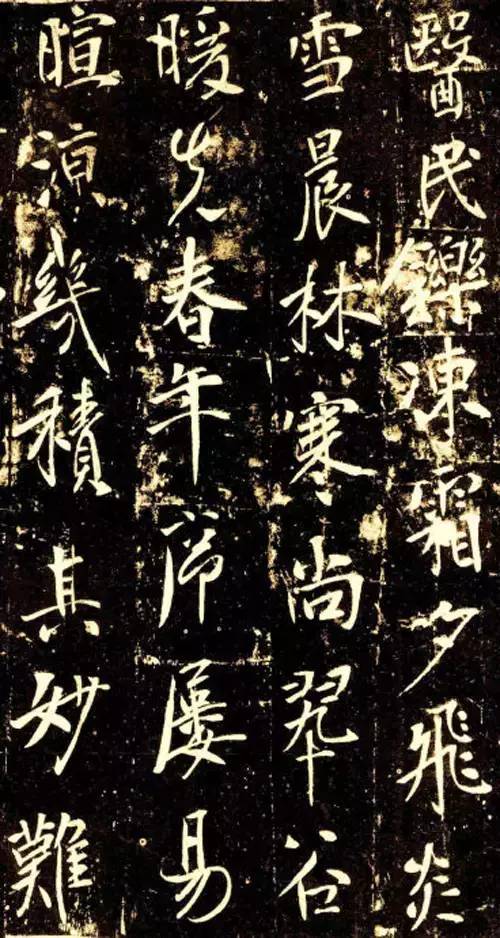 醫民鑠凍霜夕飛炎
雪晨林寒尚翠谷
暖先春年帝屢易
暄涼幾積其妙難